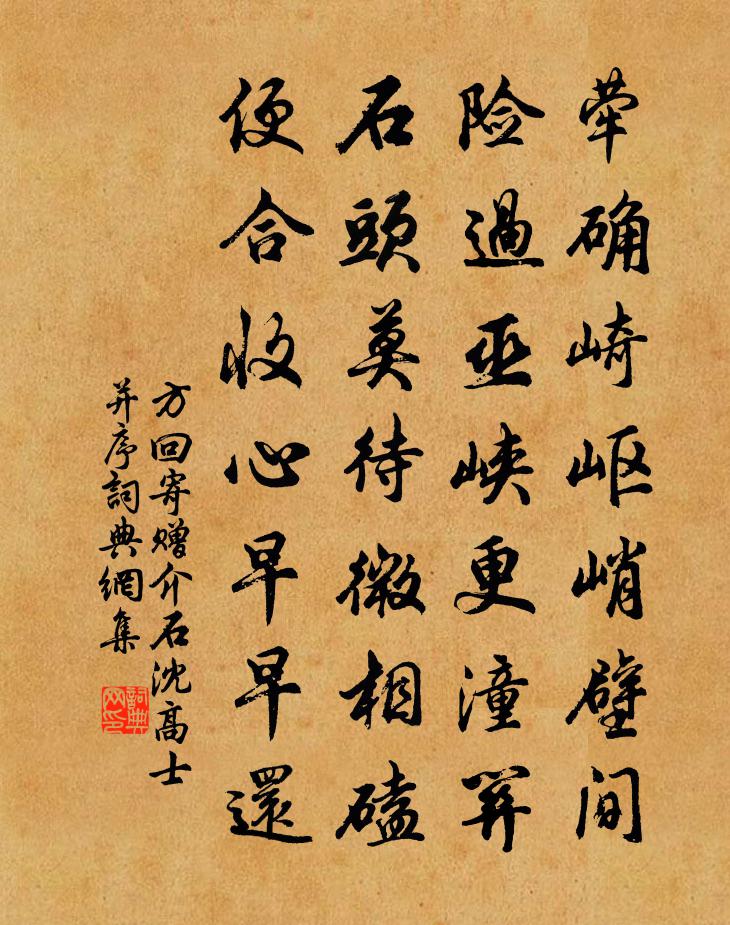 荦确崎岖峭壁间
险過巫峡更潼关
石頭莫待微相磕
便合收心早早還
方回寄赠介石沈高士
并序詞典網集
詞典
网印